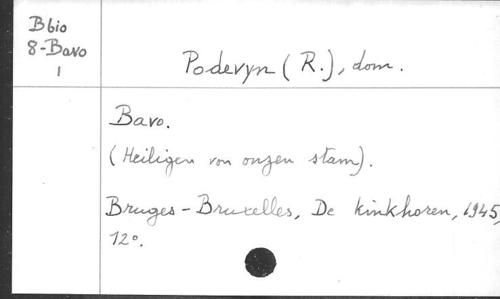 Bbio
8-Bavo
1
Podevyn (R.), dom.
Bavo.
(Heiligen von onzen stam).
Bruges - Bruxelles, De kinkhoren, 1945,
12°.